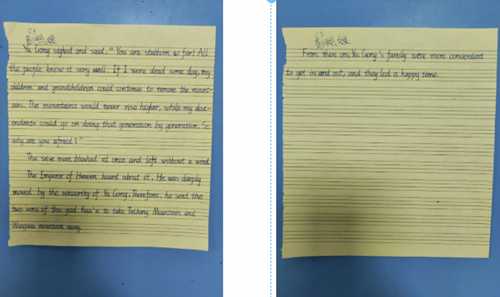 Yu Gong sighed and said, "You are stubborn so far! All
the people know it very well. If I were dead some day, my
children and grandchildren could continue to remove the mount-
ain. The mountains would never rise higher, while my desc-
endents could go on doing that generation by generation. So
why are you afraid!"
The wise man blushed at once and left without a word.
The Emperor of Heaven heard about it. He was deeply
moved by the sincerity of Yu Gong. Therefore, he sent the
two sons of the god to take Taihang Mountain and
Wangwu mountain away.
From then on, Yu Gong's family were more convenient
to get in and out, and they led a happy